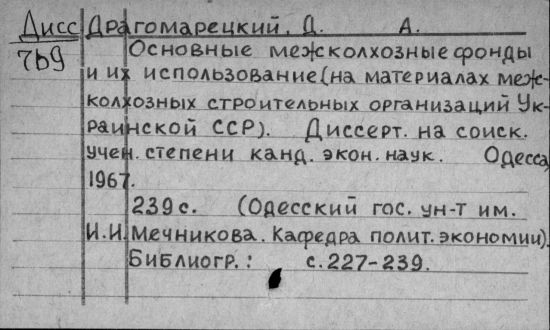 Дисс Драгомарецкий, Д. А.
769 Основные межколхозные фонды
и их использование (на материалах меж-
колхозных строительных организаций Ук-
раинской ССР). Диссерт. на соиск.
учен. степени канд. экон. наук. Одесса,
1967.
239 с. (Одесский гос. ун-т им.
И.И. Мечникова. Кафедра полит. экономии).
Библиогр.: с. 227-239.